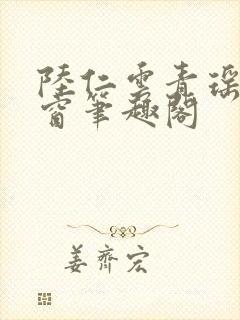 陸仁雲青瑤
窗筆趣閣
姜齊宏